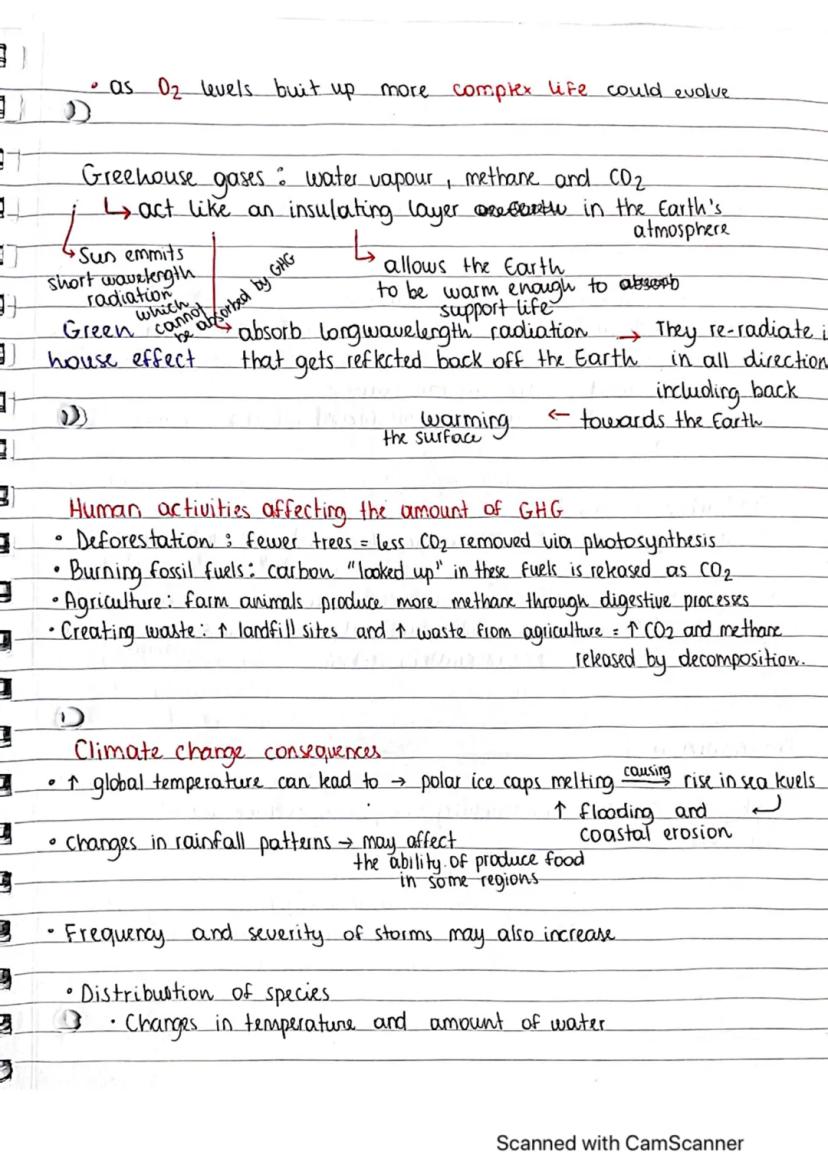 • as O2 levels buit up more complex life could evolve
Greehouse gases : water vapour , methane and CO2
↳ act like an insulating layer in the Earth's
atmosphere
Sun emmits
short wavelength
radiation
which
cannot
be absorbed by GHG
allows the Earth
to be warm enough to absorb
support life
Green
house effect
absorb longwavelength radiation → They re-radiate i
that gets reflected back off the Earth in all direction
including back
warming ← towards the Earth
the surface
Human activities affecting the amount of GHG
• Deforestation : fewer trees = less CO2 removed via photosynthesis
• Burning fossil fuels : carbon "looked up" in these fuels is released as CO2
• Agriculture : farm animals produce more methane through digestive processes
• Creating waste : ↑ landfill sites and ↑ waste from agriculture = ↑ CO2 and methane
released by decomposition.
Climate change consequences
• ↑ global temperature can lead to → polar ice caps melting causing → rise in sea levels
↑ flooding and
coastal erosion
• changes in rainfall patterns → may affect
the ability of produce food
in some regions
• Frequency and severity of storms may also increase
• Distribution of species
• Changes in temperature and amount of water
Scanned with CamScanner